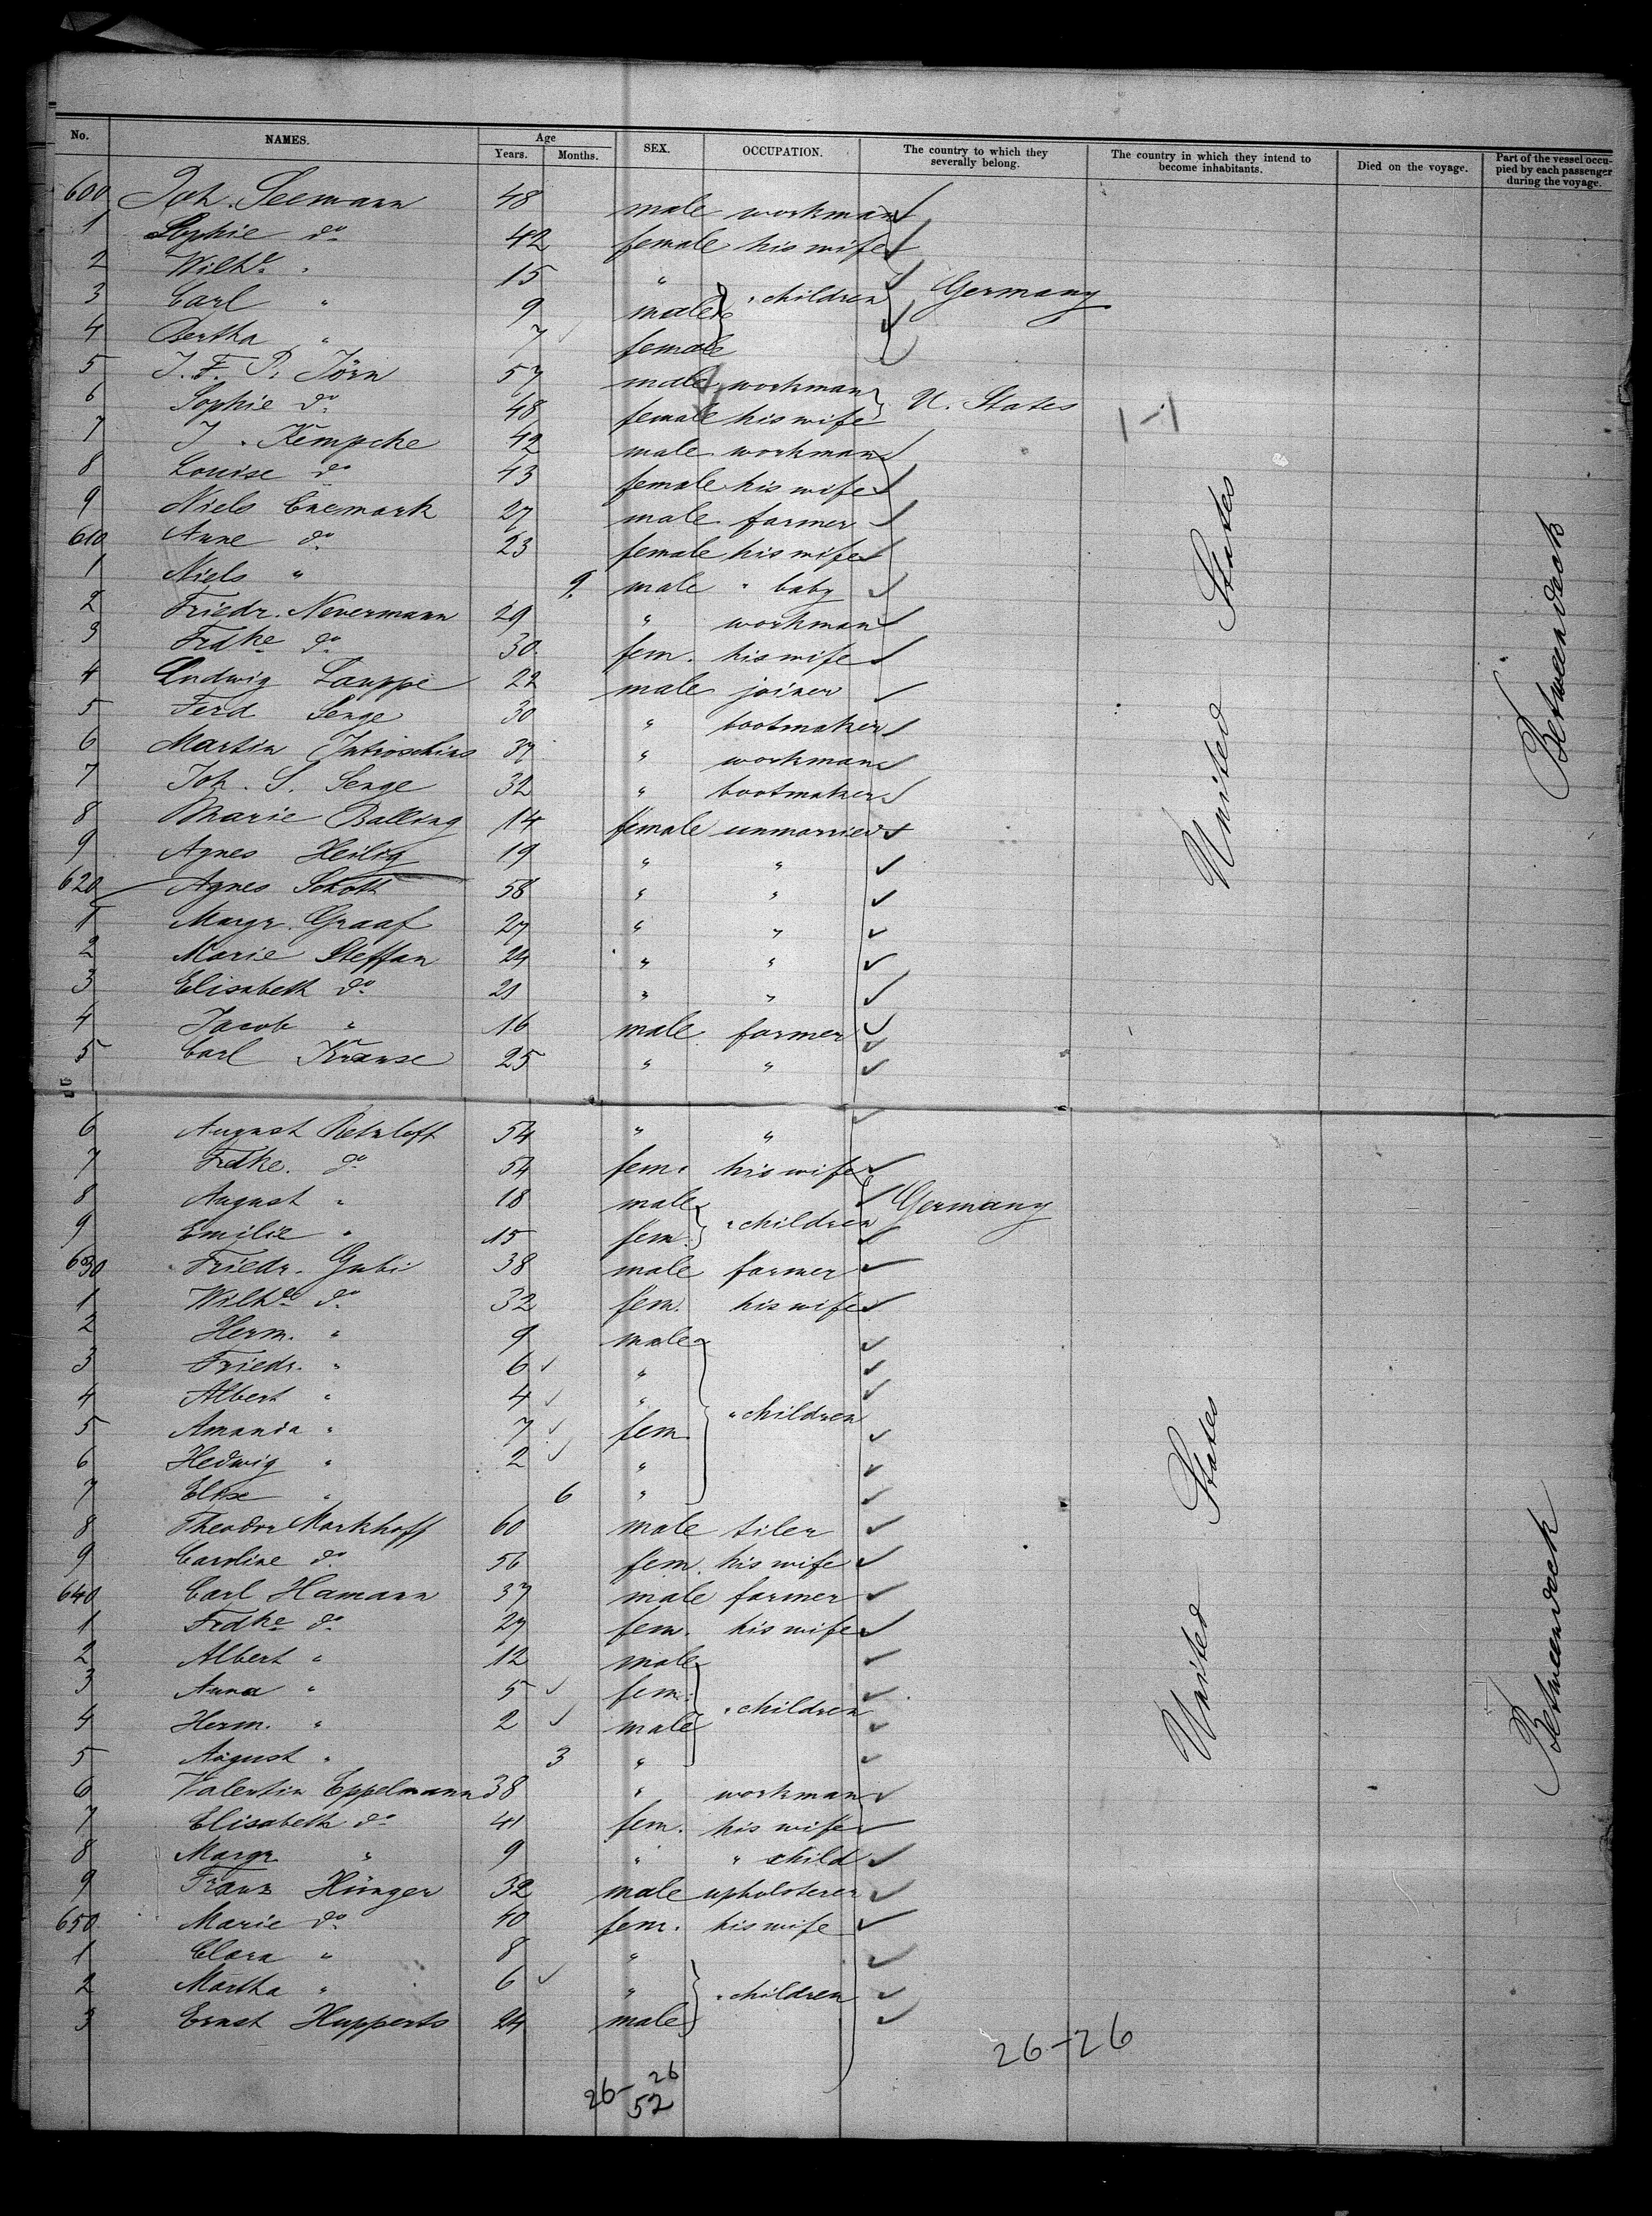 No. NAMES. Age Years. Months. SEX. OCCUPATION. The country to which they severally belong. The country in which they intend to become inhabitants. Died on the voyage. Part of the vessel occupied by each passenger during the voyage.
600 Joh. Seemann 48 male workman
1 Sophie do 42 female his wife
2 Wilhe " 15 "
3 Carl " 9 male " children Germany
4 Bertha " 7 female
5 J. F. P. Jörn 57 male workman
6 Sophie do 48 female his wife U. States 1-1
7 J. Kempcke 42 male workman
8 Louise do 43 female his wife
9 Niels Enemark 27 male farmer
610 Anne do 23 female his wife
1 Niels " 9. male " baby
2 Friedr. Nevermann 29 " workman
3 Frdke do 30 fem. his wife
4 Ludwig Lauppe 22 male joiner
5 Ferd Senge 30 " bootmaker
6 Martin 37 " workman
7 Joh. S. Senge 32 " bootmaker
8 Marie Balling 14 female unmarried
9 Agnes Heilig 19 " "
620 Agnes Schott 58 " "
1 Margr. Graaf 27 " "
2 Marie Steffan 24 " "
3 Elisabeth do 21 " "
4 Jacob " 16 male farmer
5 Carl Krause 25 " "
United States
Betweendeck
6 August Retzloff 54 " "
7 Frdke. do 54 fem. his wife
8 August " 18 male Germany
9 Emilie " 15 fem. " children
630 Friedr. Gubi 38 male farmer
1 Wilhe do 32 fem. his wife
2 Herm. " 9 male
3 Friedr. " 6 "
4 Albert " 4 " " children
5 Amanda " 7 fem.
6 Hedwig " 2 "
7 Elise " 6 "
8 Theodor Markhoff 60 male tiler
9 Caroline do 56 fem. his wife
640 Carl Hamann 37 male farmer
1 Frdke do 27 fem. his wife
2 Albert " 12 male
3 Anna " 5 fem. " children
4 Herm. " 2 male
5 August " 3 "
6 Valentin Eppelmann 38 " workman
7 Elisabeth do 41 fem. his wife
8 Margr. " 9 " " child
9 Franz Hünger 32 male upholsterer
650 Marie do 40 fem. his wife
1 Clara " 8 "
2 Martha " 6 " " children
3 Ernst Hupperts 24 male
United States
Betweendeck
26-26
26-26
52